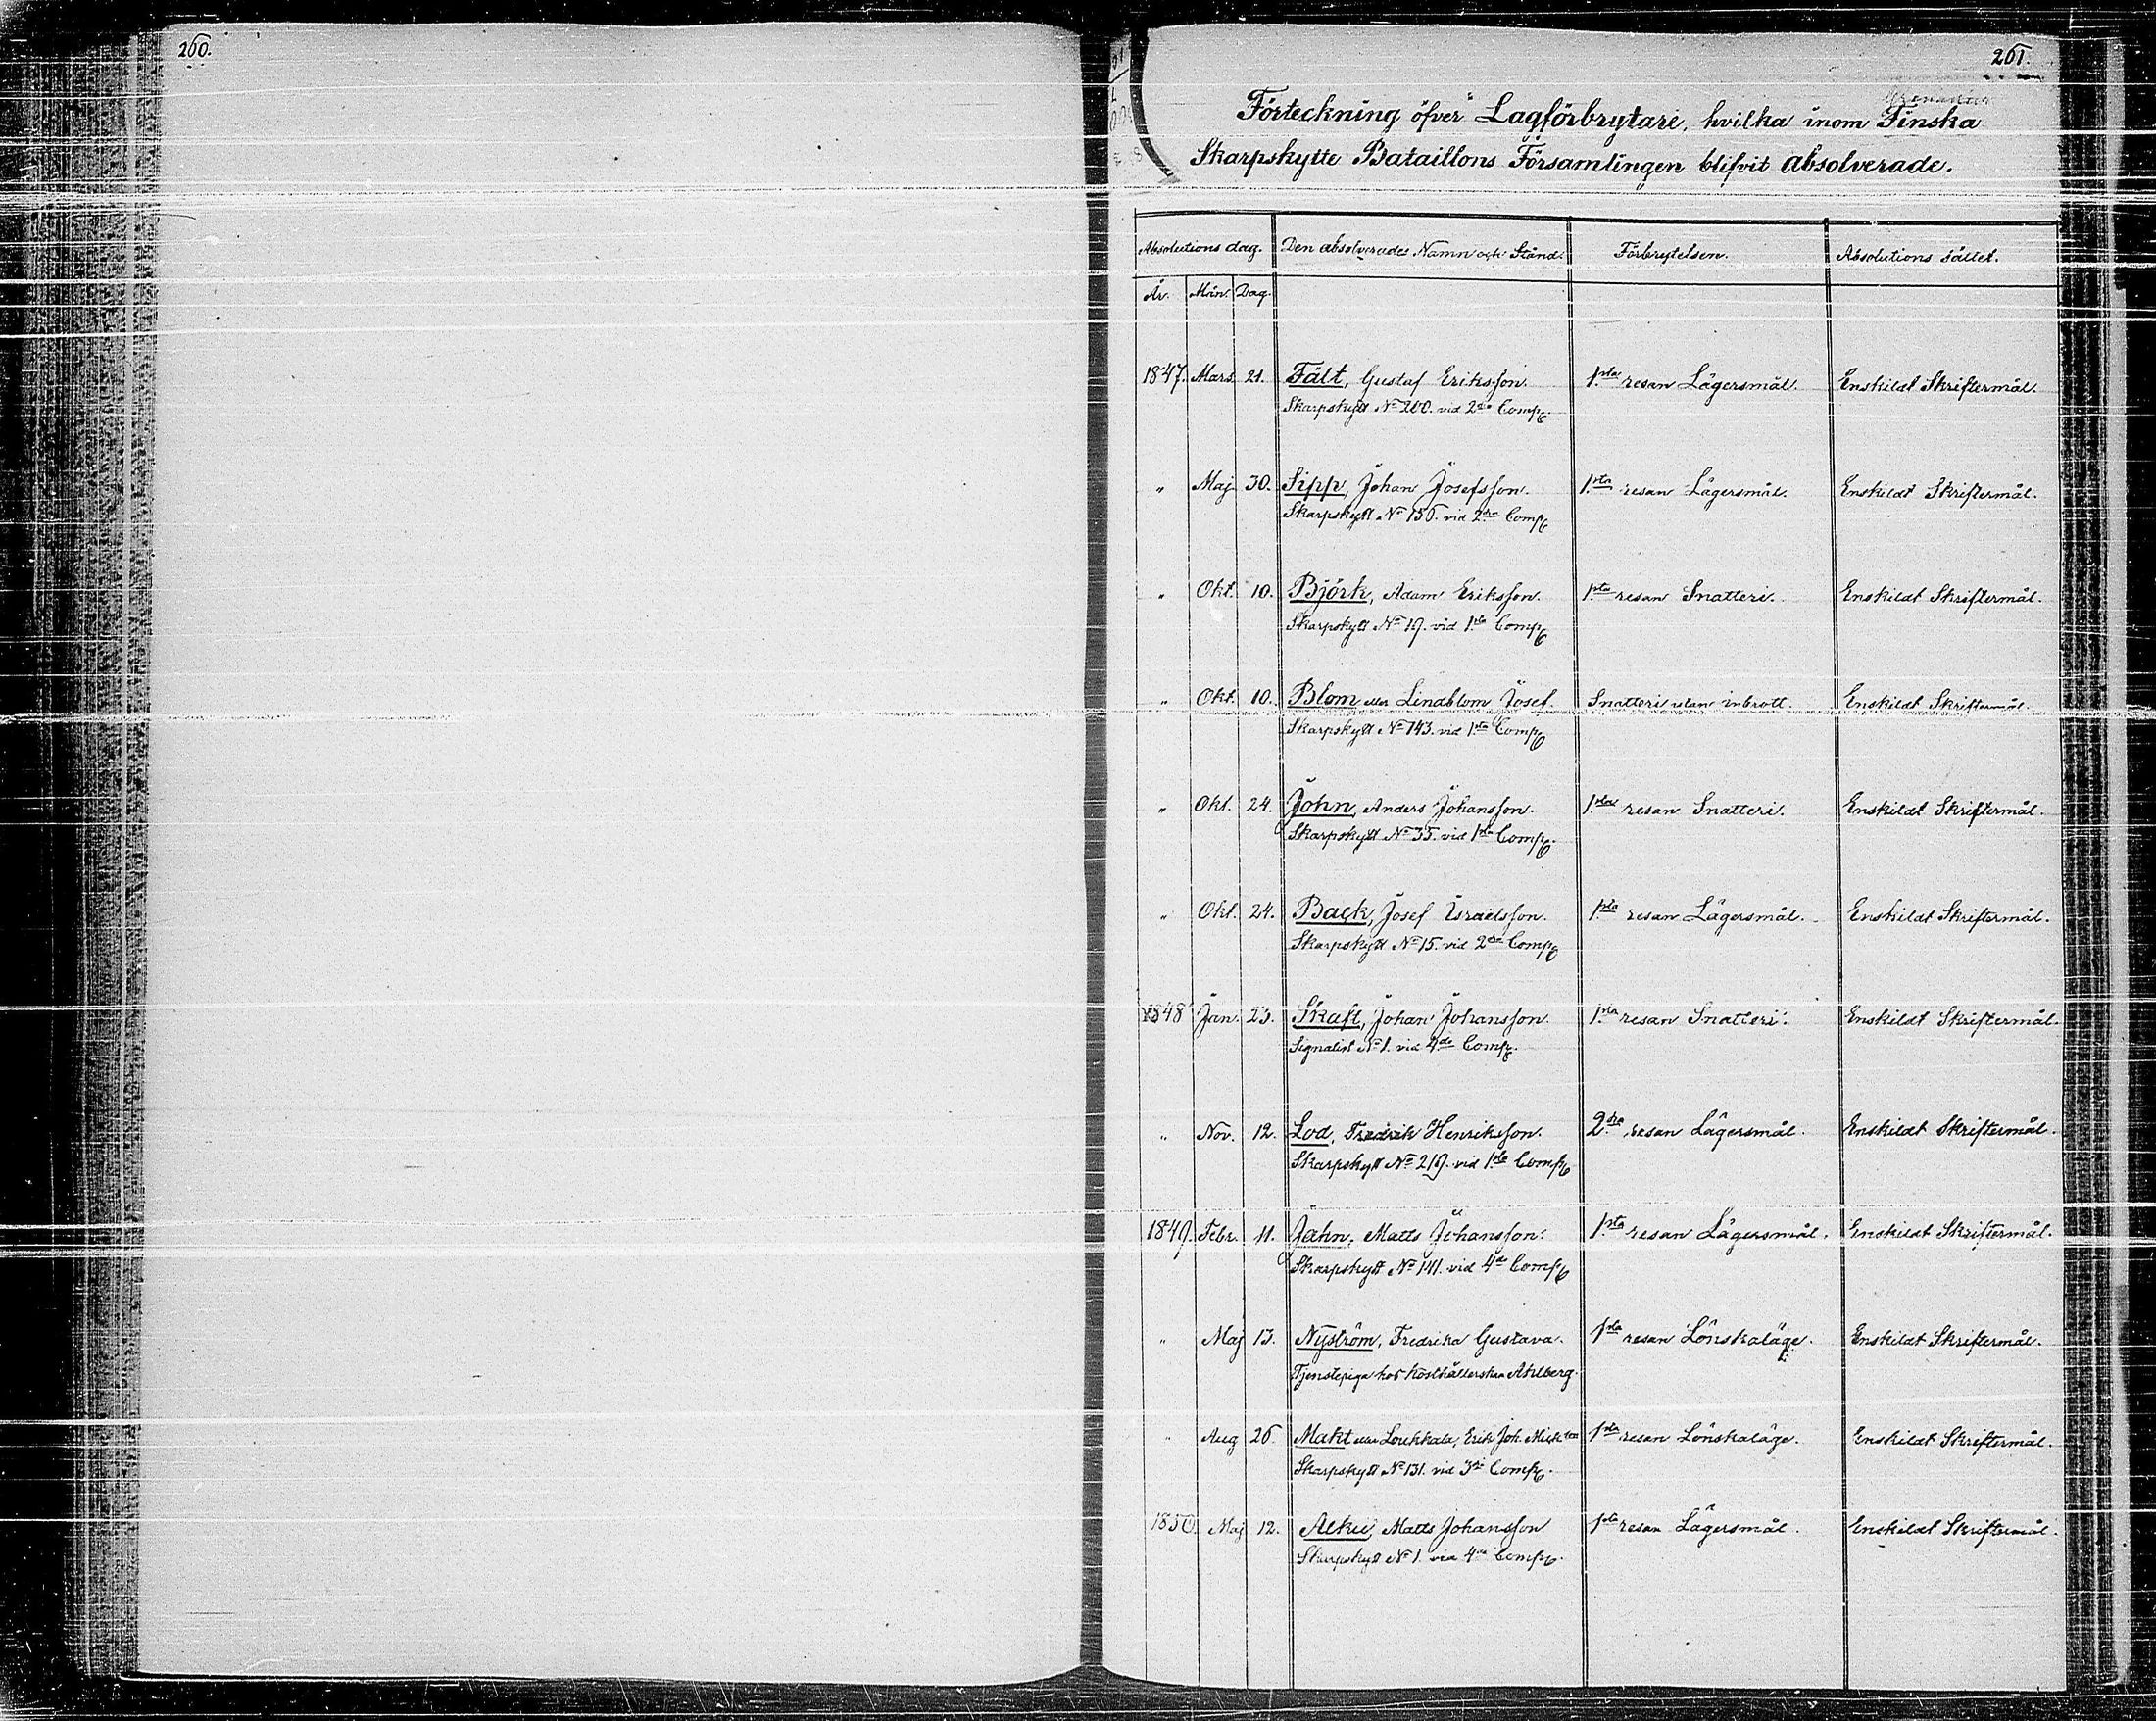 260.
261.
Förteckning öfver Lagförbrytare, hvilka inom Finska
Skarpskytte Bataillons Församlingen blifvit absolverade.
Absolutions dag. Den absolverades Namn och Stånd. Förbrytelsen. Absolutions sättet.
År. Mån. Dag.
1847. Mars 21. Fält, Gustaf Eriksson. 1.sta resan Lägersmål. Enskildt Skriftermål.
Skarpskytt No 200. vid 2dra Comp.
" Maj 30. Sipp, Johan Josefsson. 1.sta resan Lägersmål. Enskildt Skriftermål.
Skarpskytt No 156. vid 2.dra Comp
" Okt. 10. Björk, Adam Eriksson. 1.sta resan Snatteri. Enskildt Skriftermål.
Skarpskytt No 19. vid 1.sta Comp
" Okt. 10. Blom eller Lindblom Josef. Snatteri utan inbrott. Enskildt Skriftermål.
Skarpskytt No 143. vid 1.sta Comp
" Okt. 24. John, Anders Johansson. 1.sta resan Snatteri. Enskildt Skriftermål.
Skarpskytt No 35. vid 1sta Comp.
" Okt. 24. Back, Josef Israelsson. 1.sta resan Lägersmål. Enskildt Skriftermål.
Skarpskytt No 15. vid 2dra Comp
1848 Jan. 23. Skaft, Johan Johansson. 1.sta resan Snatteri. Enskildt Skriftermål.
Signalist No 1. vid 4de Comp.
" Nov. 12. Lod, Fredrik Henriksson. 2.dra resan Lägersmål. Enskildt Skriftermål.
Skarpskytt No 219. vid 1.sta Comp
1849. Febr. 11. Jahn, Matts Johansson. 1.sta resan Lägersmål. Enskildt Skriftermål.
Skarpskytt No 141. vid 4de Comp
" Maj 13. Nyström, Fredrika Gustava. 1sta resan Lönskaläge. Enskildt Skriftermål.
Tjenstepiga hos kosthållerskan Ahlberg.
" Aug 26. Makt eller Loukkala, Erik Joh. Mick.son 1sta resan Lönskaläge. Enskildt Skriftermål.
Skarpskytt No 131. vid 3die Comp.
1850. Maj 12. Matts Johansson 1sta resan Lägersmål. Enskildt Skriftermål.
Skarpskytt No 1. vid 4de Comp.